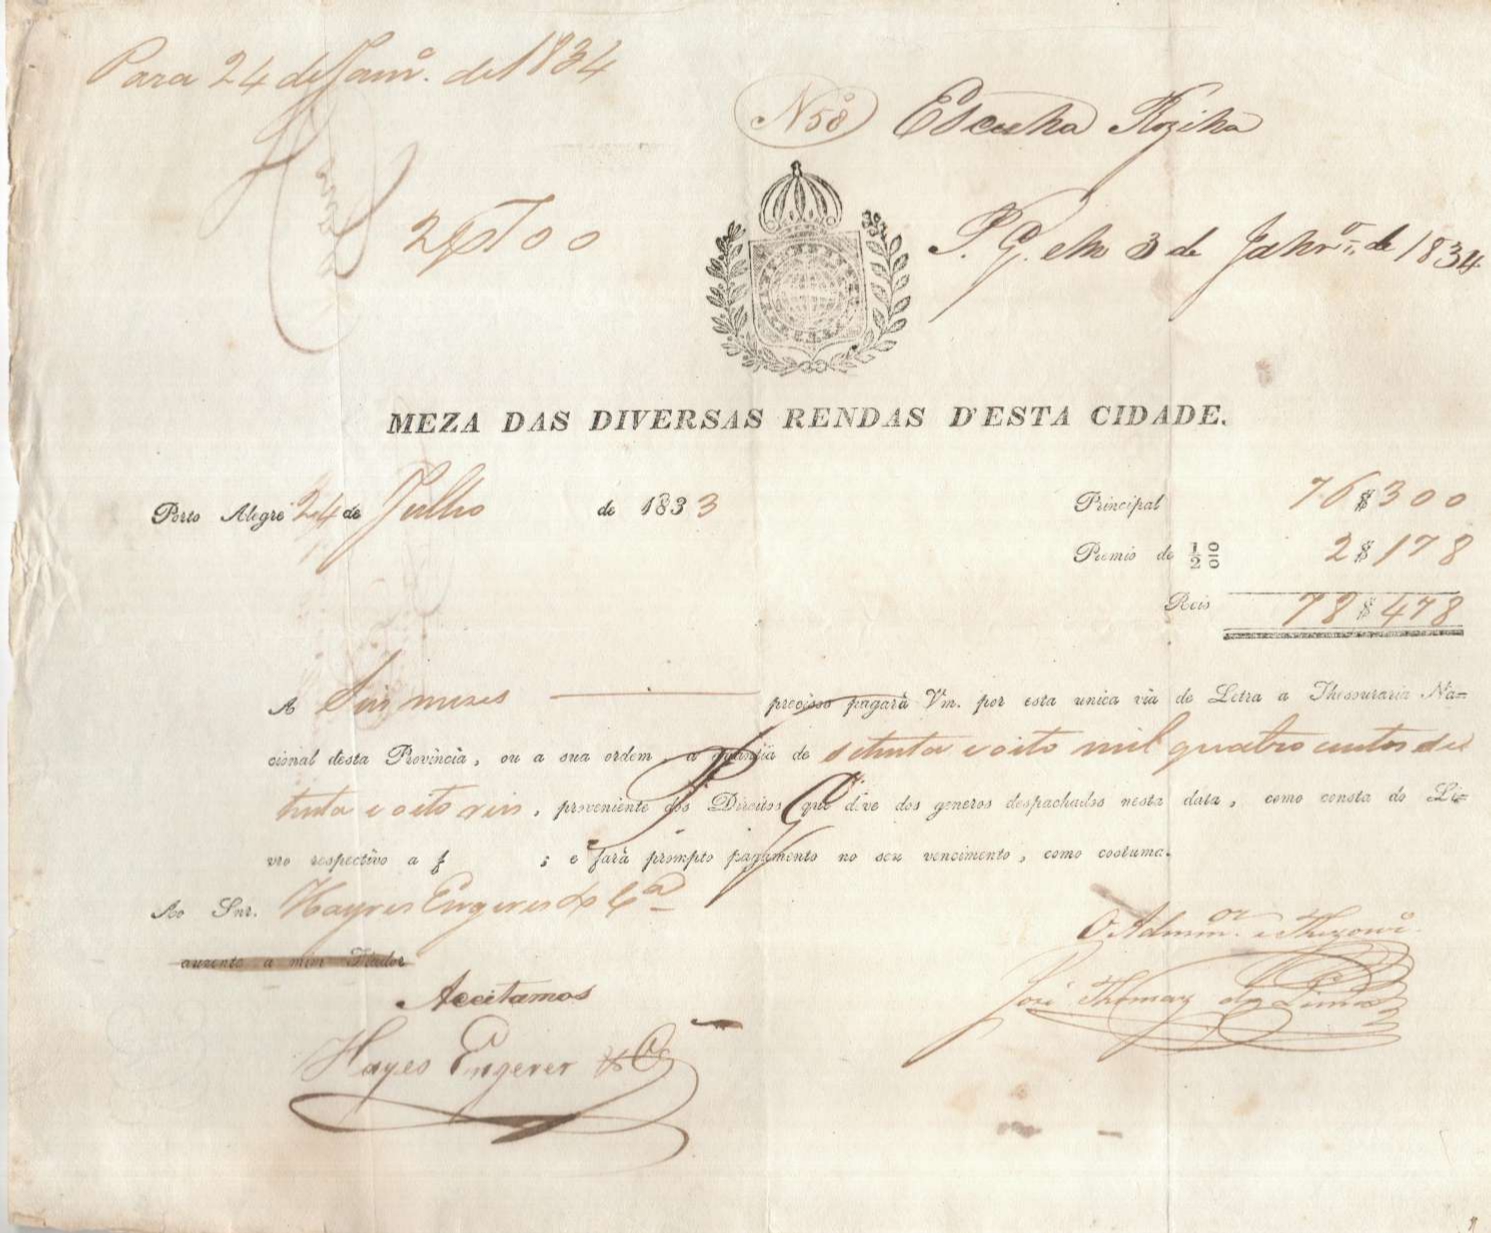 Para 24 de Janro. de 1834
No 58
Escuna
2$700
P. G. em 3 de Janro. de 1834
MEZA DAS DIVERSAS RENDAS D'ESTA CIDADE.
Porto Alegre 24 de Julho de 1833
Principal 76$300
Premio de ½ 0/0 2$178
Reis 78$478
A Seis mezes precisos pagarà Vm. por esta unica via de Letra a Thesouraria Na=
cional desta Provincia, ou a sua ordem, a quantia de setenta e oito mil quatro centos se
tenta e oito reis, proveniente dos Direitos que deve dos generos despachados nesta data, como consta do Li=
vro respectivo a f ; e farà prompto pagamento no seu vencimento, como costuma.
Ao Snr. Hayes Engerer & Ca
auzente a mim Fiador
O Admor. e Thezouro.
José Thomaz de Lima
Acceitamos
Hayes Engerer & Co